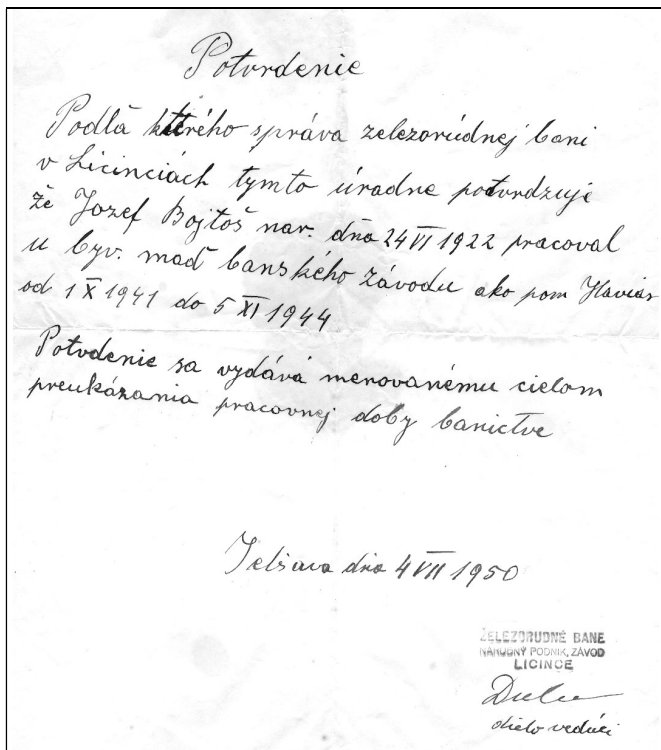 Potvrdenie
Podľa ktorého správa zelezorúdnej bani
v Licinciách tymto úradne potvrdzuje
že Jozef Bojtoš nar. dňa 24 VI 1922 pracoval
u byv. maď banského závodu ako pom Haviar
od 1 X 1941 do 5 XI 1944
Potvdenie sa vydává menovanému cielom
preukázania pracovnej doby banictve
Jelšava dňa 4 VII 1950
ŽELEZORUDNÉ BANE
NÁRODNÝ PODNIK, ZÁVOD
LICINCE
dielo vedúci